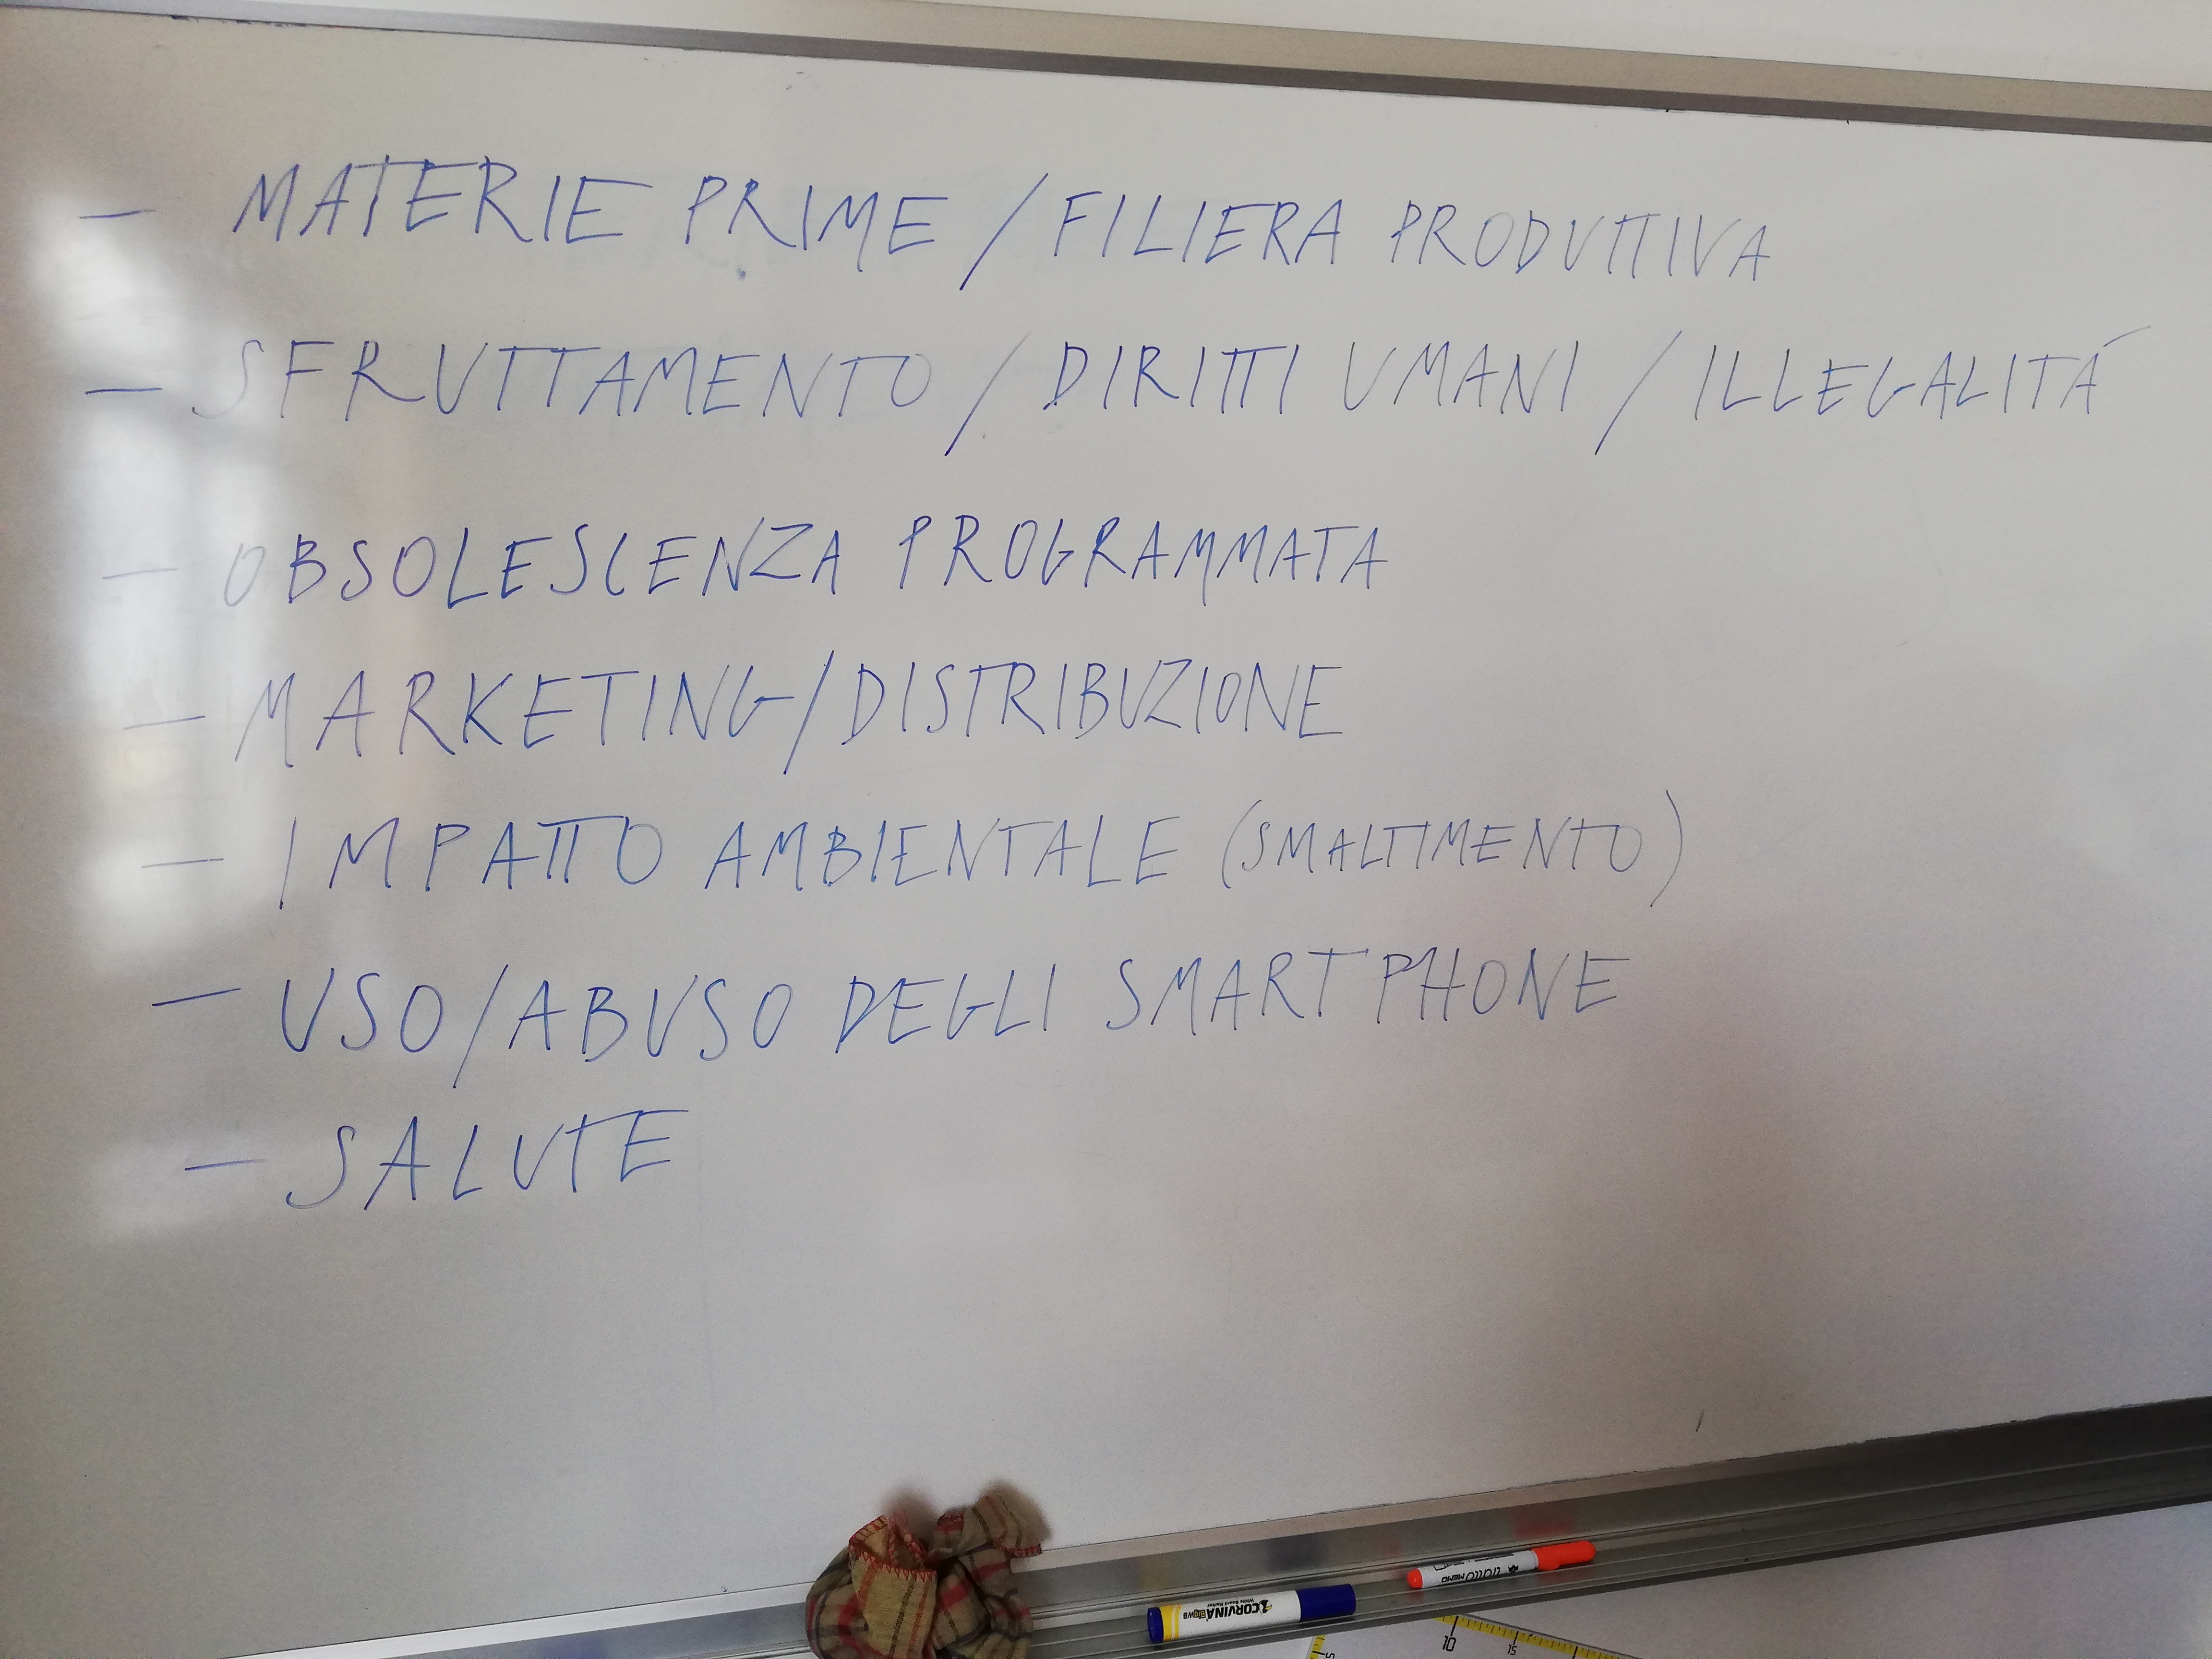 - MATERIE PRIME / FILIERA PRODUTTIVA
- SFRUTTAMENTO / DIRITTI UMANI / ILLEGALITÁ
- OBSOLESCENZA PROGRAMMATA
- MARKETING/DISTRIBUZIONE
- IMPATTO AMBIENTALE (SMALTIMENTO)
- USO/ABUSO DEGLI SMARTPHONE
- SALUTE
tratto MEMO
CORVINA
White Board Marker
10
15
5